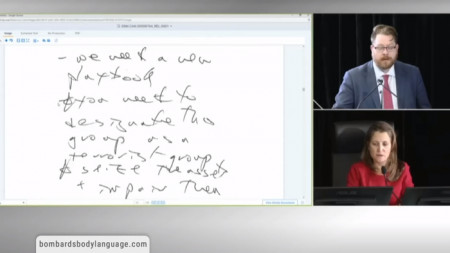 - we need a new
playbook
you need to
designate the
group as a
terrorist group
& seize the assets
+ impair them
bombardsbodylanguage.com